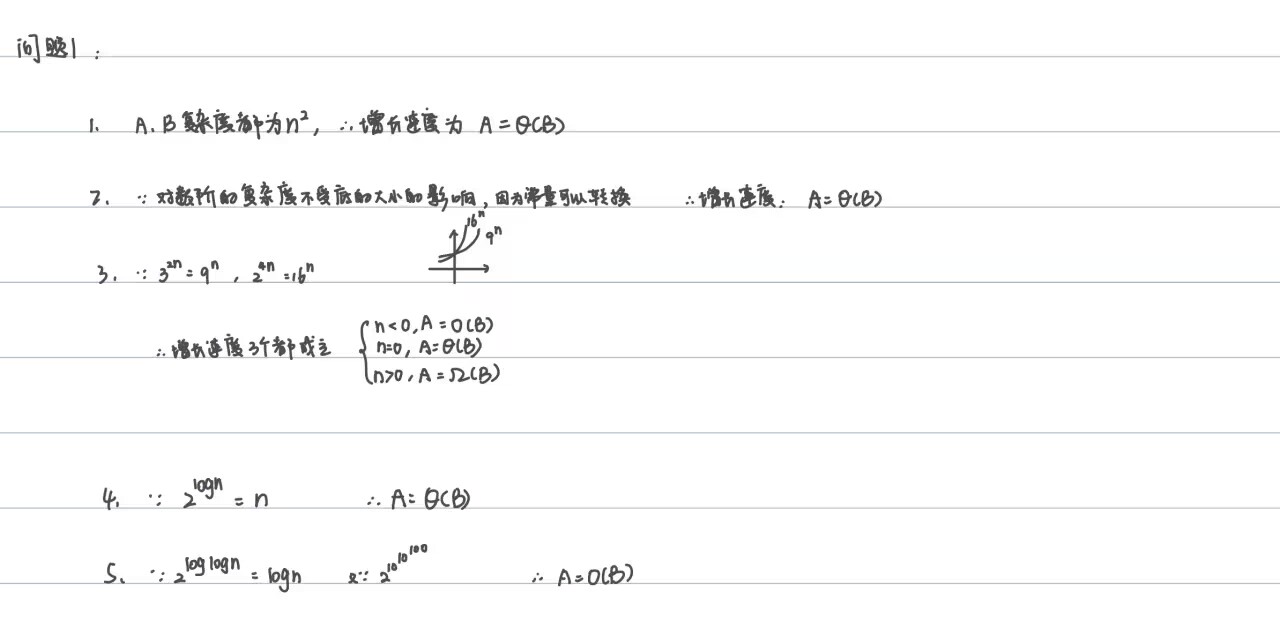 问题1：
1. A、B复杂度都为n²，∴增长速度为 A=θ(B)
2. ∵对数阶的复杂度不受底的大小的影响，因为常量可以转换 ∴增长速度：A=θ(B)
16ⁿ
9ⁿ
3. ∵ 3²ⁿ=9ⁿ，2⁴ⁿ=16ⁿ
∴增长速度3个都成立
n<0, A=O(B)
n=0, A=θ(B)
n>0, A=Ω(B)
4. ∵ 2^logn = n ∴ A=θ(B)
5. ∵ 2^loglogn = logn 又∵ 2^10^10^100 ∴ A=O(B)